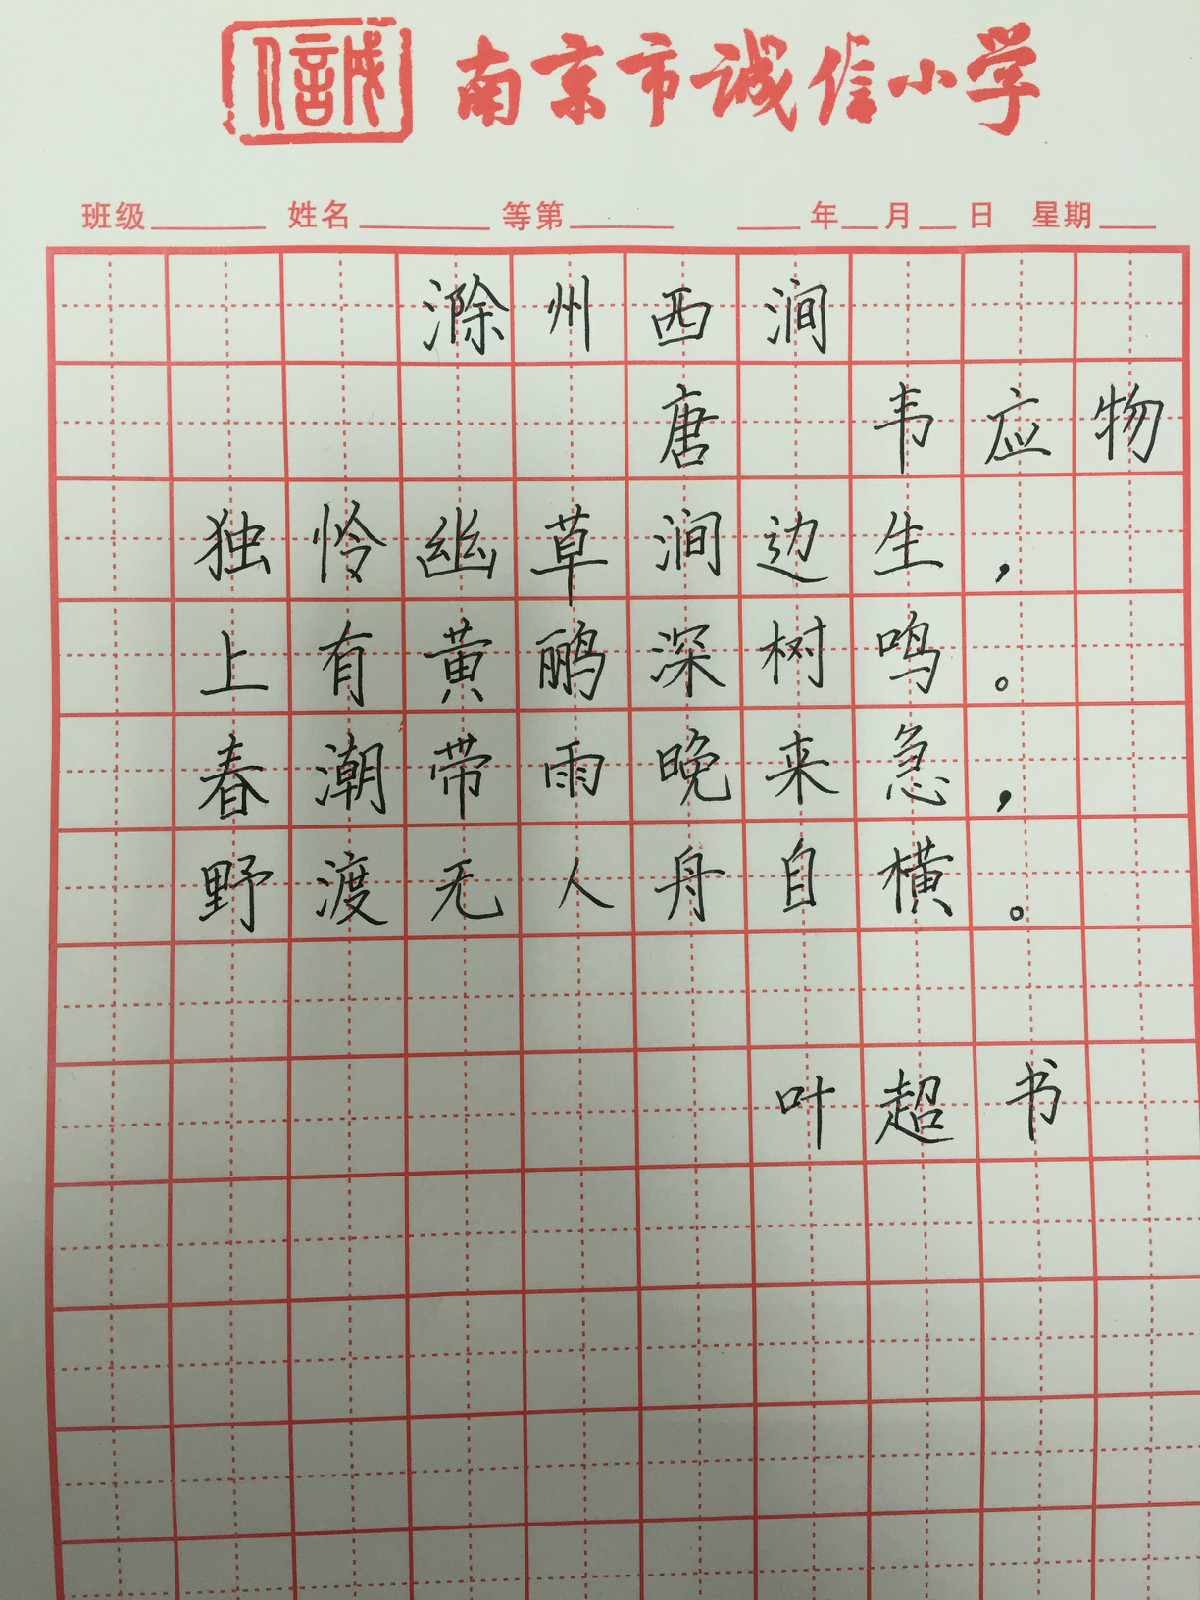 誠信 南京市诚信小学
班级 姓名 等第 年 月 日 星期
滁州西涧
唐 韦应物
独怜幽草涧边生，
上有黄鹂深树鸣。
春潮带雨晚来急，
野渡无人舟自横。
叶超书